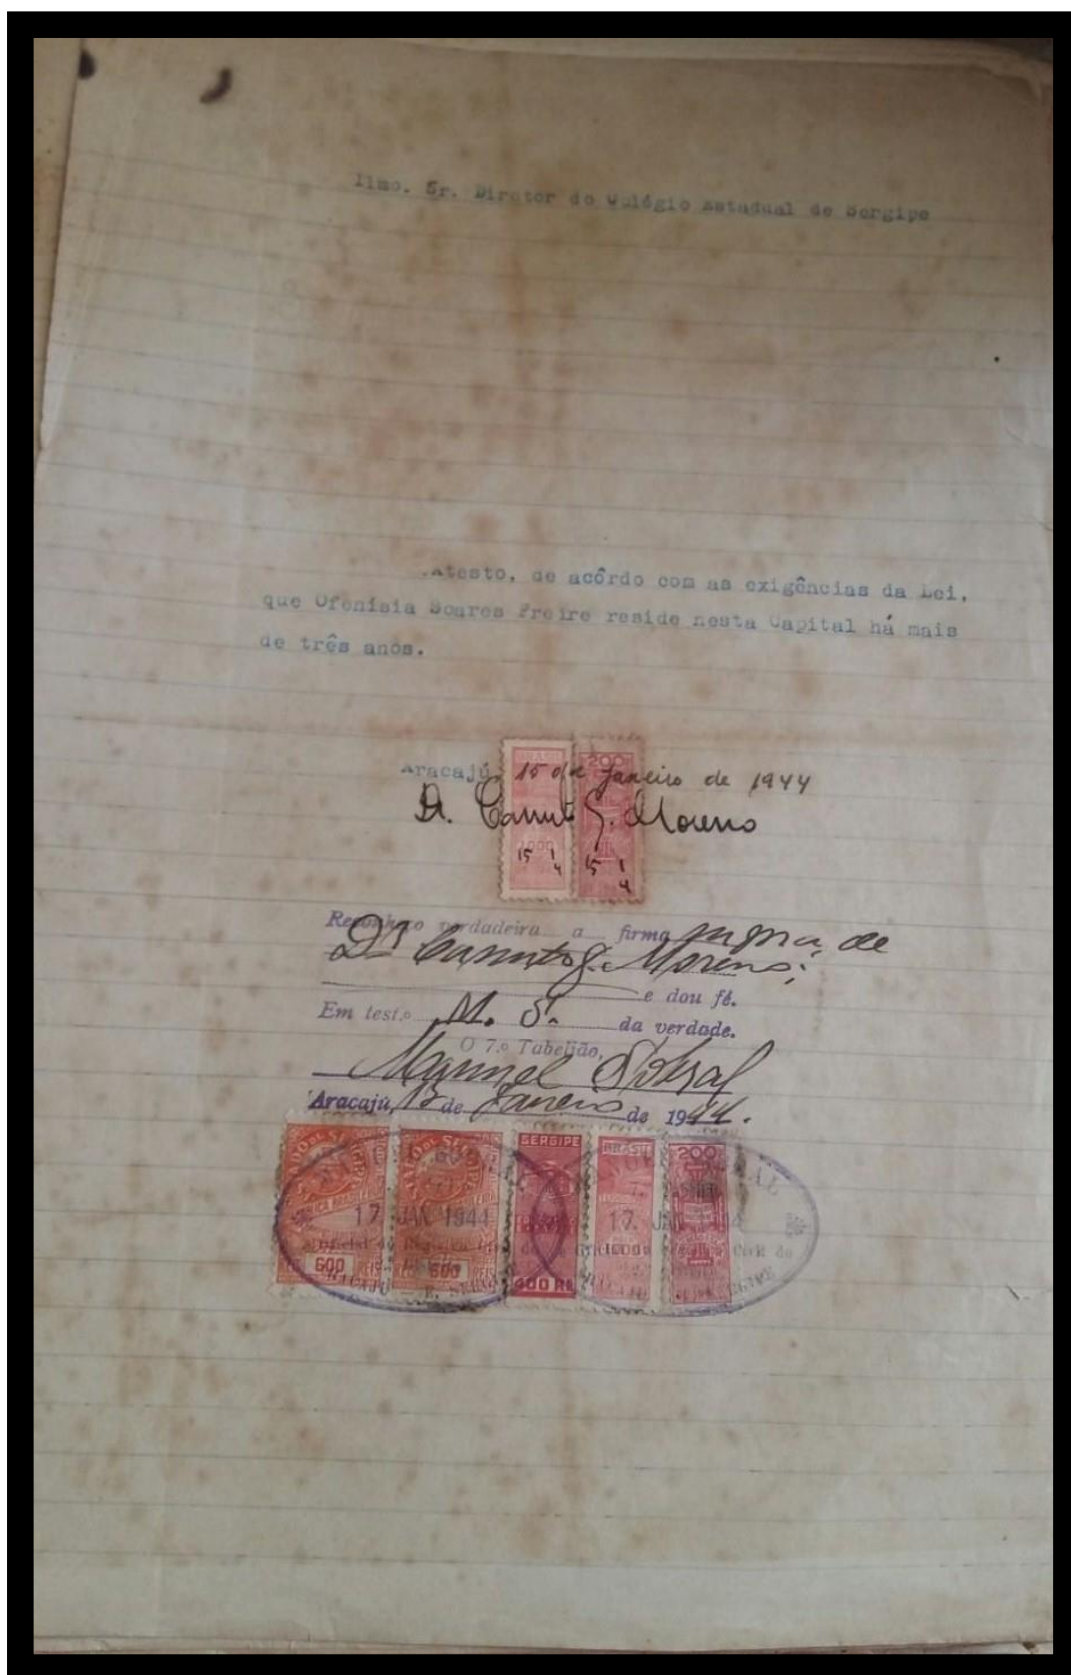 Ilmo. Sr. Diretor do Colégio Estadual de Sergipe
Atesto, de acôrdo com as exigências da Lei,
que Ofenísia Soares Freire reside nesta Capital há mais
de três anos.
BRASIL 200
Aracajú, 15 de janeiro de 1944
Dr. Canuto G. Moreno
15 1 4 15 1 4
Reconheço verdadeira a firma supra de
Dr. Canuto G. Moreno;
e dou fé.
Em test.º M. S. da verdade.
O 7.º Tabelião,
Manuel Sobral
Aracajú, de Janeiro de 1944.
SERGIPE BRASIL 200
17 JAN 1944 17 JAN
600 REIS 600 REIS 400 RÉIS